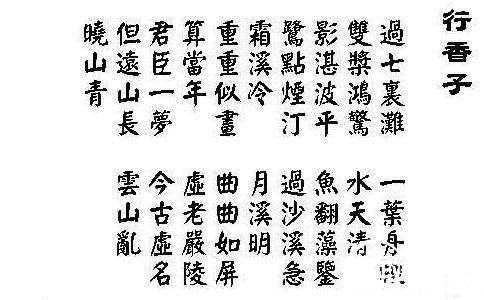 行香子
過七裏灘 一葉舟
雙槳鴻驚 水天清
影湛波平 魚翻藻鑒
鷺點煙汀 過沙溪急
霜溪冷 月溪明
重重似畫 曲曲如屏
算當年 虛老嚴陵
君臣一夢 今古虛名
但遠山長 雲山亂
曉山青